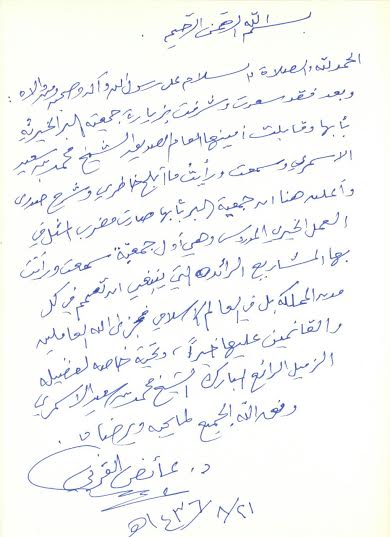 بسم الله الرحمن الرحيم
الحمد لله والصلاة والسلام على رسول الله وآله وصحبه ومن والاه :
وبعد فقد سعدت وشرفت بزيارة جمعية البر الخيرية
بأبها وقابلت أمينها العام الصديق الشيخ محمد بن سعيد
الأسمري وسمعت ورأيت ما أثلج خاطري وشرح صدري
وأعلن هنا أن جمعية البر بأبها صارت مضرب المثل في
العمل الخيري المدروس وهي أول جمعية سمعت ورأيت
بها المشاريع الرائدة التي ينبغي أن تعمم في كل
مدن المملكة بل في العالم الإسلامي فجزى الله العاملين
والقائمين عليها خيراً، وتحية خاصة لفضيلة
الزميل الرائع المبارك الشيخ محمد بن سعيد الأسمري
وفق الله الجميع لما يحبه ويرضاه.
د. عائض القرني
٢١/٨/١٤٣٦هـ